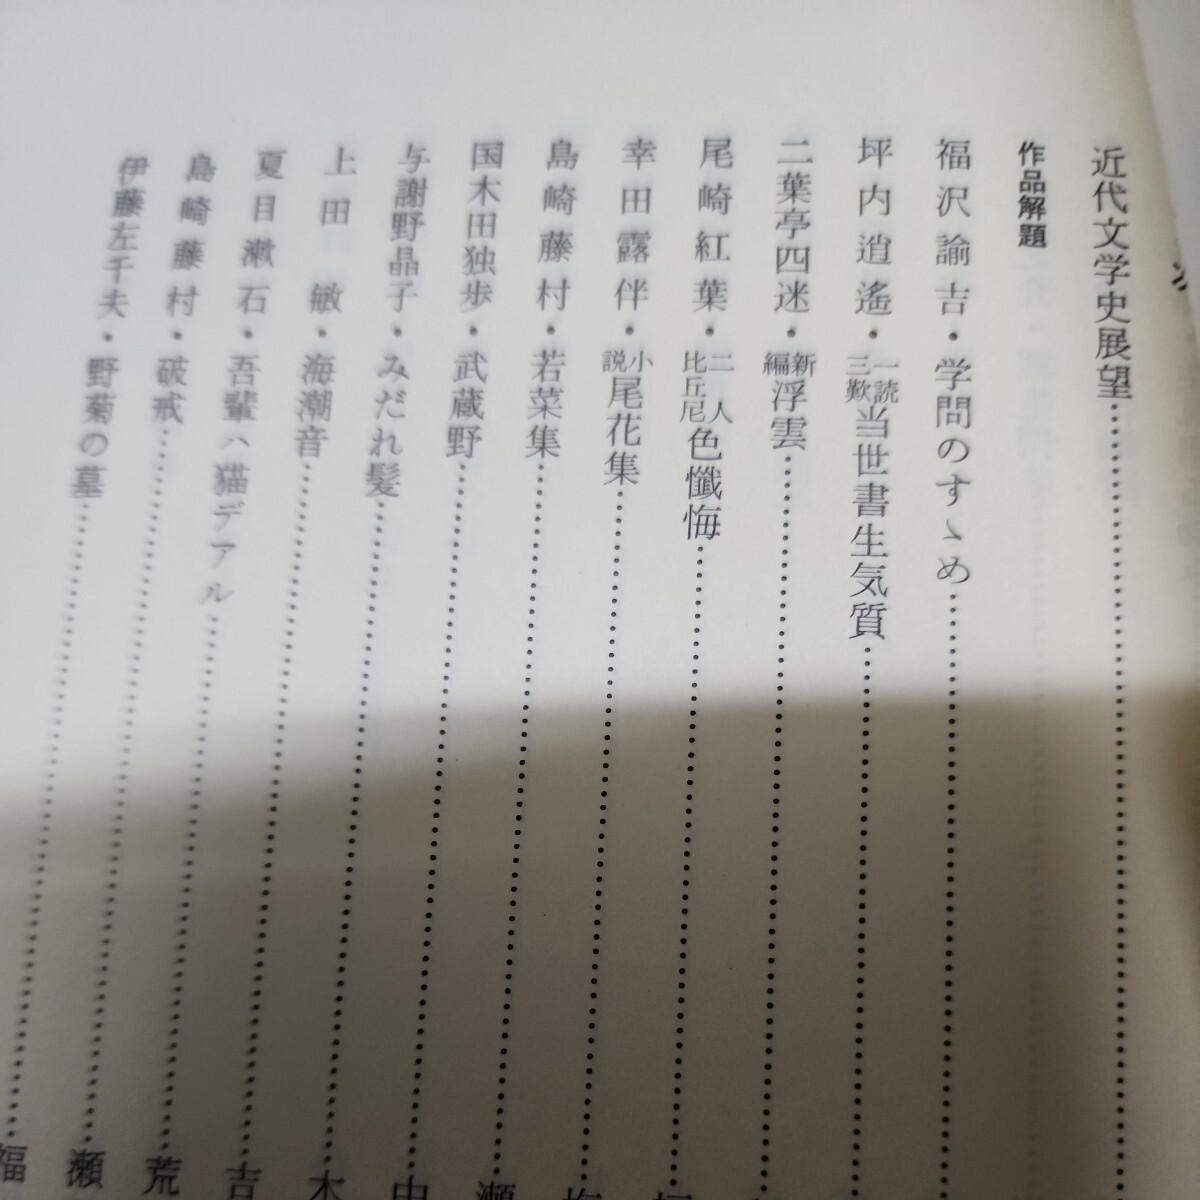 近代文学史展望
作品解題
福沢諭吉・学問のすゝめ
坪内逍遙・一読三歎当世書生気質
二葉亭四迷・新編浮雲
尾崎紅葉・二人比丘尼色懺悔
幸田露伴・小説尾花集
島崎藤村・若菜集
国木田独歩・武蔵野
与謝野晶子・みだれ髪
上田敏・海潮音
夏目漱石・吾輩ハ猫デアル
島崎藤村・破戒
伊藤左千夫・野菊の墓
瀬
木
吉
荒
瀬
福